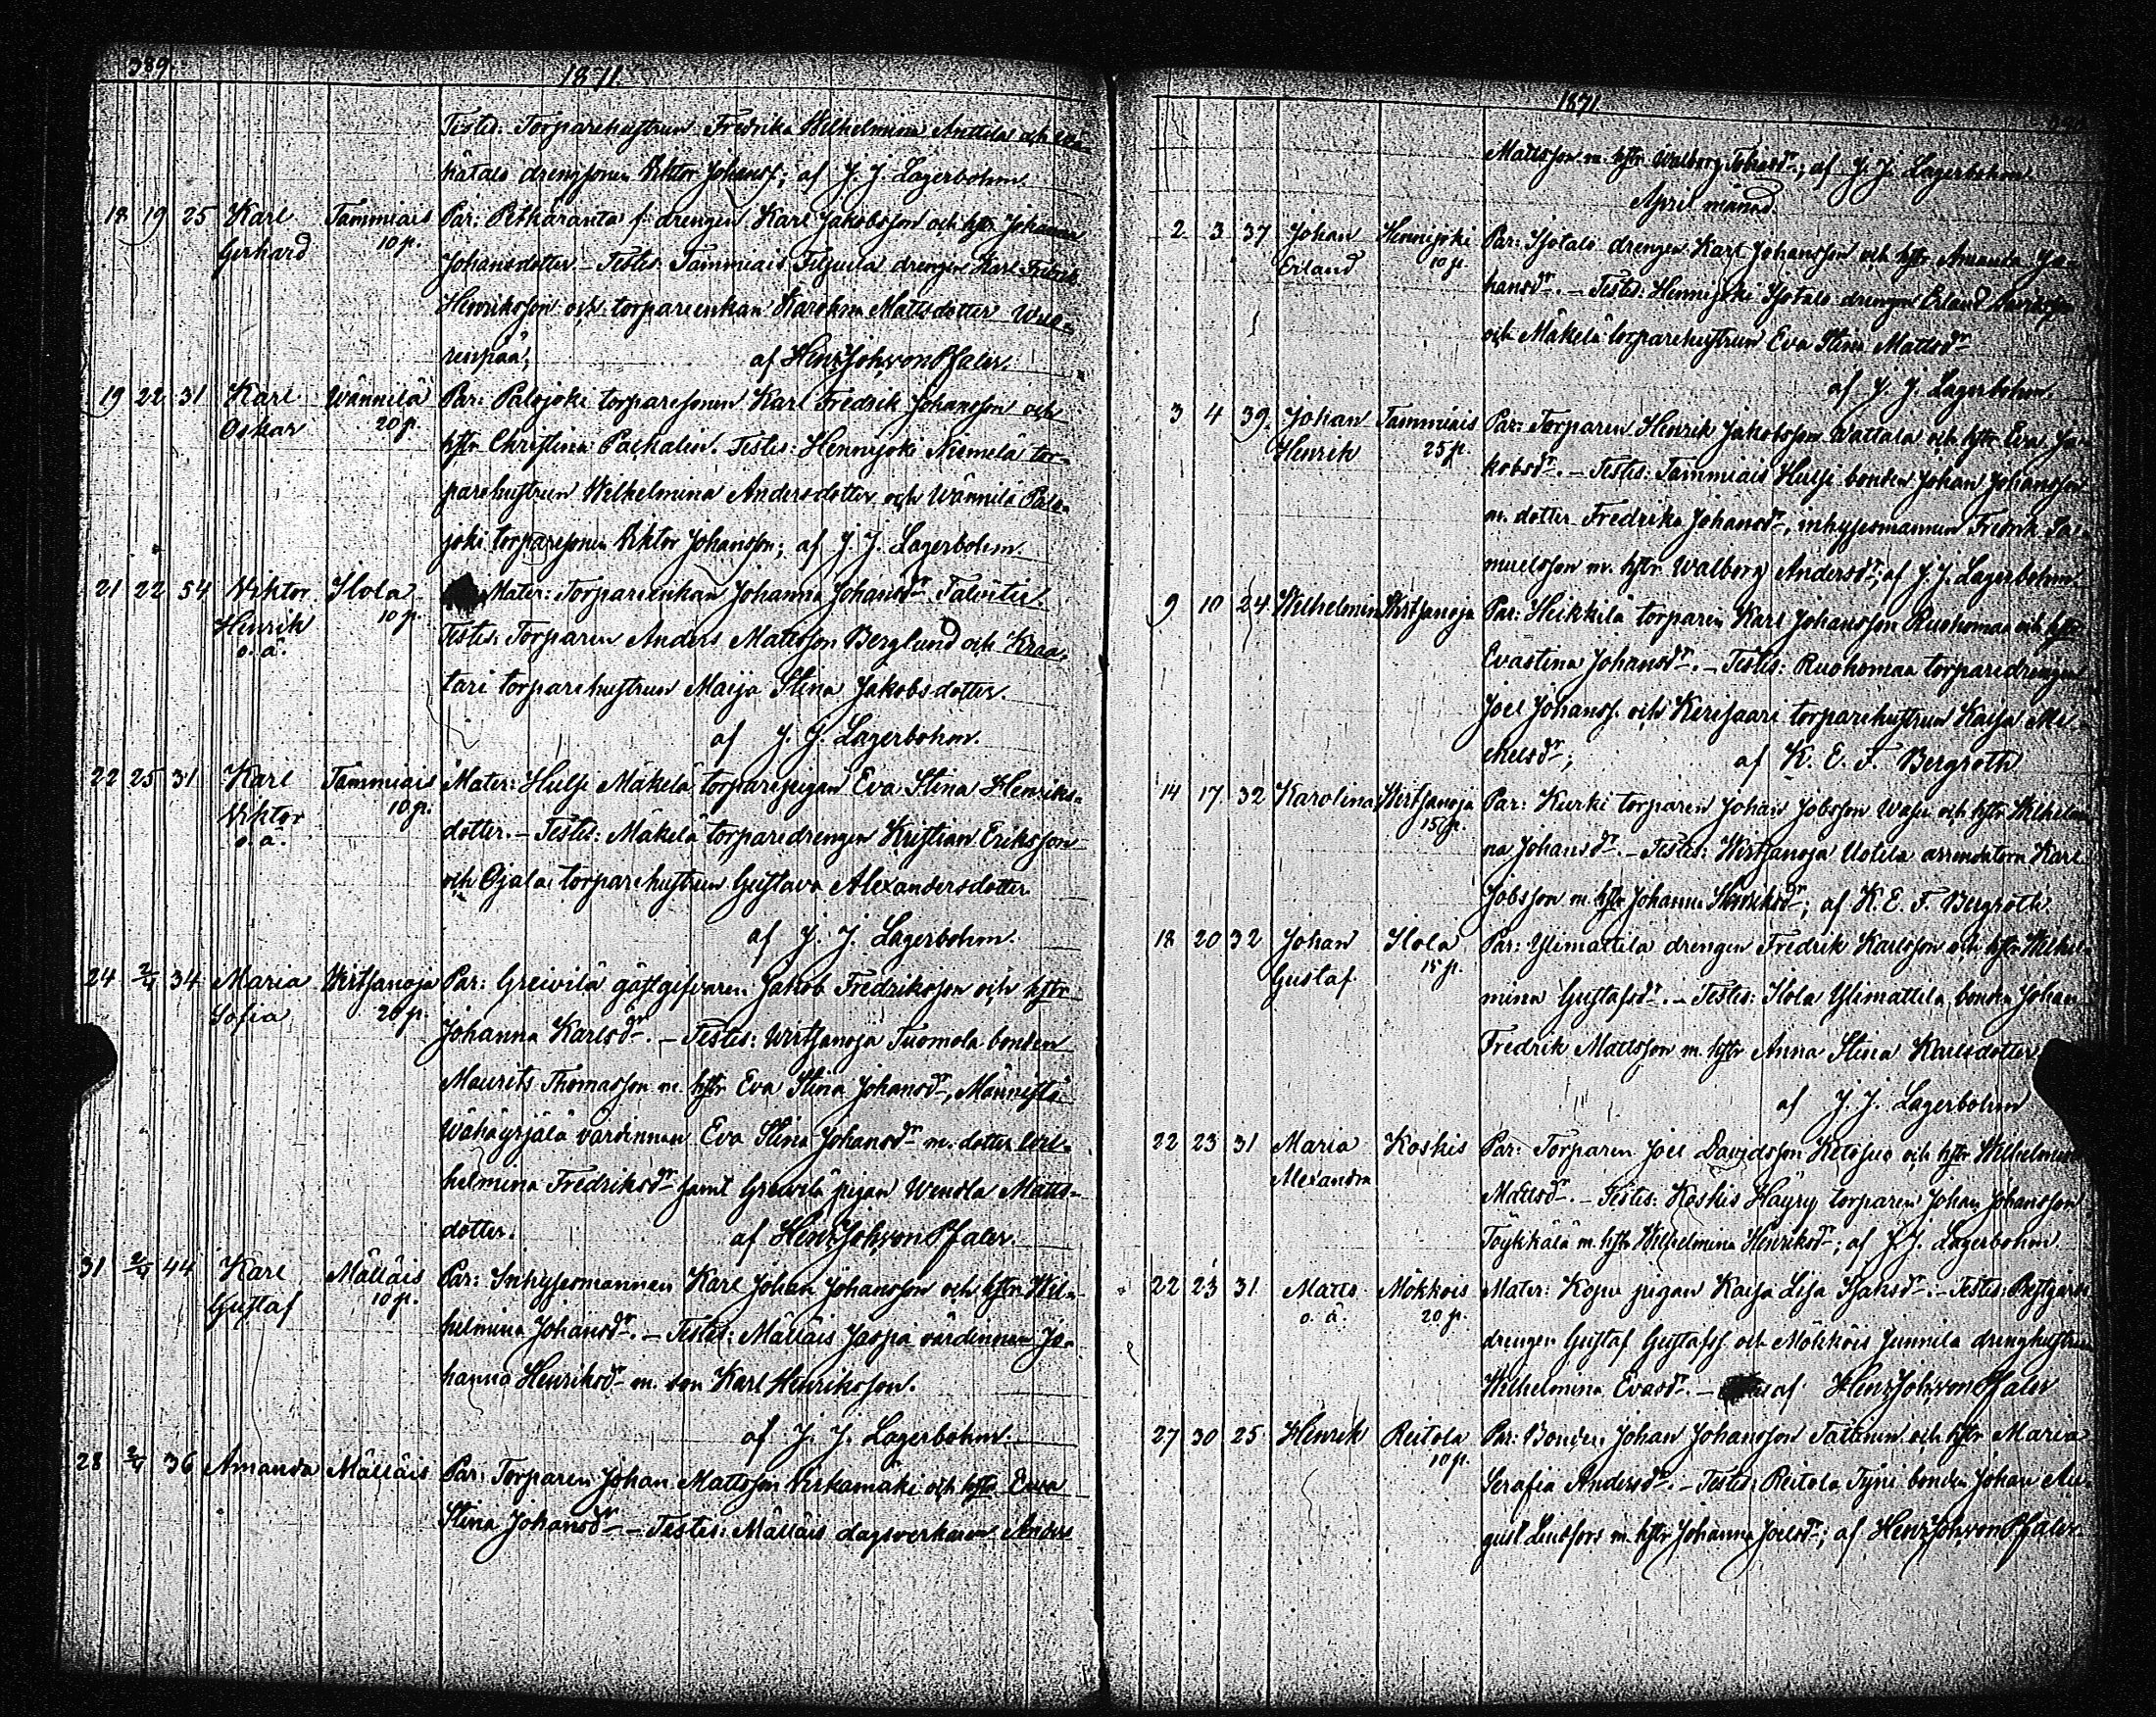 389.
1871.
Testes: Torparehustrun Fredrika Wilhelmina Anttila och
drengsonen Viktor Johanss; af J. J. Lagerbohm.
18 19 25 Karl Tammiais Par: Petkäranta f. drengen Karl Jakobsson och hstr Johanna
Gerhard 10 p. Johansdotter. – Testes: Tammiais drengen Karl Fredrik
Henriksson och torpareenkan Karolina Mattsdotter
af Henr Joh. von Pfaler.
19 22 31 Karl Wännilä Par: Palojoki torparesonen Karl Fredrik Johansson och
Oskar 20 p. hstr Christina Pachalin. Testes: Hennijoki Niemelä tor-
parehustrun Wilhelmina Andersdotter och Wännilä Palo-
joki torparesonen Viktor Johansson; af J. J. Lagerbohm.
21 22 54 Viktor Ilola Mater: Torpareenkan Johanna Johansdr
Henrik 10 p. Testes: Torparen Anders Mattsson Berglund och Kraa-
o. ä. tari torparehustrun Maija Stina Jakobsdotter.
af J. J. Lagerbohm.
22 25 31 Karl Tammiais Mater: Hulsi Mäkelä torparepigan Eva Stina Henriks-
Viktor 10 p. dotter. – Testes: Mäkelä torparedrengen Kristian Eriksson
o. ä. och Ojala torparehustrun Gustava Alexandersdotter
af J. J. Lagerbohm.
24 2/4 34 Maria Wirtsanoja Par: Greivilä gästgifvaren Jakob Fredriksson och hstr
Sofia 20 p. Johanna Karlsdr. – Testes: Wirtsanoja Tuomola bonden
Maurits Thomasson m. hstr Eva Stina Johansdr, Männistö
Wähäyrjälä värdinnan Eva Stina Johansdr m. dotter Wil-
helmina Fredriksdr samt Greivilä pigan Wendla Matts-
dotter. af Henr Joh. von Pfaler.
31 2/4 44 Karl Mälläis Par: Inhysesmannen Karl Johan Johansson och hstr Wil-
Gustaf 10 p. helmina Johansdr. – Testes: Mälläis Jaspa värdinnan Jo-
hanna Henriksdr m. son Karl Henriksson.
af J. J. Lagerbohm.
28 2/4 36 Amanda Mälläis Par: Torparen Johan Mattsson Virkamäki och hstr Eva
Stina Johansdr – Testes: Mälläis dagsverkaren Anders
1871.
Mattsson m. hstr Walborg Tobiasdr; af J. J. Lagerbohm
April månad.
2 3 37 Johan Hennijoki Par: Isotalo drengen Karl Johansson och hstr Amanda Jo-
Erland 10 p. hansdr. – Testes: Hennijoki Isotalo drengen Erland
och Mäkelä torparehustrun Eva Stina Mattsdr
af J. J. Lagerbohm.
3 4 39 Johan Tammiais Par: Torparen Henrik Jakobsson Wattala och hstr Eva Ja-
Henrik 25 p. kobsdr. – Testes: Tammiais Hulsi bonden Johan Johansson
m. dotter Fredrika Johansdr, inhysesmannen Fredrik Sa-
muelsson m. hstr Walborg Andersdr; af J. J. Lagerbohm.
9 10 24 Wilhelmina Wirtsanoja Par: Heikkilä torparen Karl Johansson Ruohomaa och hstr
Evastina Johansdr. – Testes: Ruohomaa torparedrengen
Joel Johanss. och Kerisaari torparehustrun Kaisa Mi-
chelsdr; af K. E. F. Bergroth
14 17 32 Karolina Wirtsanoja Par: Kurki torparen Johan Jobsson och hstr Wilhelmi-
15 p. na Johansdr. – Testes: Wirtsanoja Uotila arrendatorn Karl
Jobsson m. hstr Johanna Henriksdr; af K. E. F. Bergroth.
18 20 32 Johan Ilola Par: Ylimattila drengen Fredrik Karlsson och hstr Wilhel-
Gustaf 15 p. mina Gustafsdr. – Testes: Ilola Ylimattila bonden Johan
Fredrik Mattsson m. hstr Anna Stina Karlsdotter
af J. J. Lagerbohm
22 23 31 Maria Koskis Par: Torparen Joel Davidsson Ketosuo och hstr Wilhelmina
Alexandra Mattsdr. – Testes: Koskis Häyry torparen Johan Johansson
Töykkälä m. hstr Wilhelmina Henriksdr; af J. J. Lagerbohm.
22 23 31 Matts Mökkois Mater: Kopu pigan Kaisa Lisa Isaksdr. – Testes: Prestgårds
o. ä. 20 p. drengen Gustaf Gustafss. och Mökkois Junnila drenghustrun
Wilhelmina Evasdr. – af Henr Joh. von Pfaler
27 30 25 Henrik Reitola Par: Bonden Johan Johansson och hstr Maria
10 p. Serafia Andersdr. – Testes: Reitola Tyni bonden Johan Au-
gust Lindfors m. hstr Johanna Joelsdr; af Henr Joh. von Pfaler